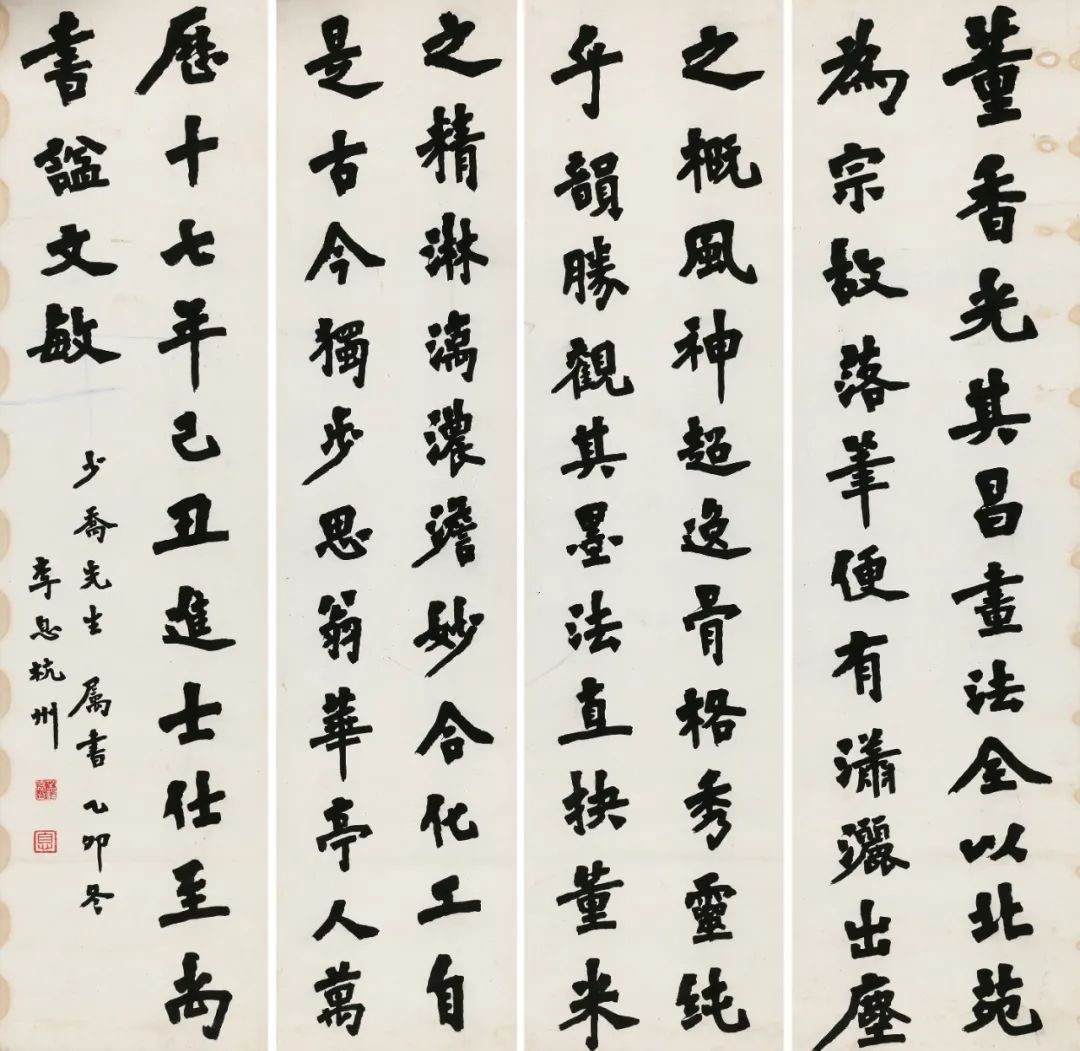 董香光其昌畫法全以北苑
為宗故落筆便有瀟灑出塵
之概風神超逸骨格秀靈純
乎韻勝觀其墨法直抉董米
之精淋漓濃澹妙合化工自
是古今獨步思翁華亭人萬
歷十七年己丑進士仕至尚
書謚文敏
少喬先生 属書 乙卯冬
李息杭州
息